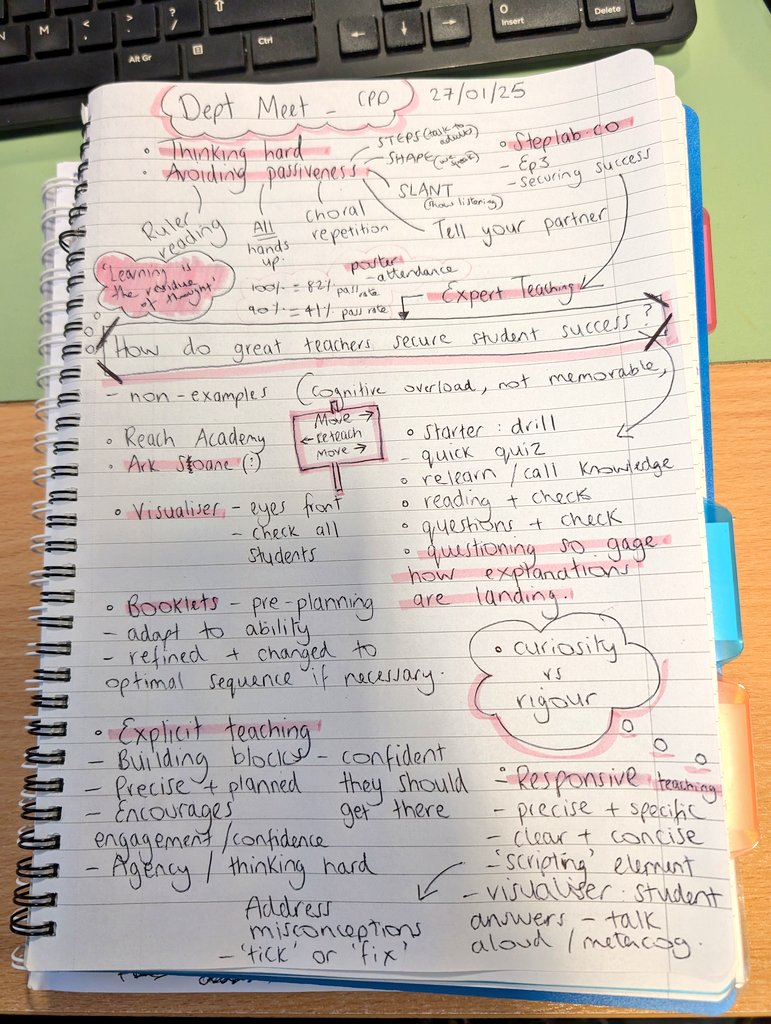 Dept Meet - CPD 27/01/25
• Thinking hard
• Avoiding passiveness
STEPS (talk to adults)
SHAPE (we speak)
SLANT (show listening)
Tell your partner
choral repetition
All hands up.
Ruler reading
• Steplab.co
- Ep3
- securing success
'Learning is the residue of thought'
poster - attendance
100% = 82% pass rate
90% = 41% pass rate
Expert Teaching
How do great teachers secure student success?
- non-examples (cognitive overload, not memorable,
• Reach Academy
• Ark Sloane (?)
Move →
← reteach
Move →
• starter: drill
- quick quiz
• relearn / call knowledge
• reading + check
• questions + check
• questioning so gage
how explanations
are landing.
• Visualiser - eyes front
- check all
students
• Booklets - pre-planning
- adapt to ability
- refined + changed to
optimal sequence if necessary.
• curiosity
vs
rigour
• Explicit teaching
- Building blocks - confident
- Precise + planned they should
- Encourages get there
engagement/confidence
- Agency / thinking hard
- Responsive teaching
- precise + specific
- clear + concise
- 'scripting' element
- visualiser. student
answers - talk
aloud / metacog.
Address
misconceptions
- 'tick' or 'fix'
N
M
<
,
>
.
?
/
Alt Gr
Ctrl
0
Insert
Delete
.
←
↓
→